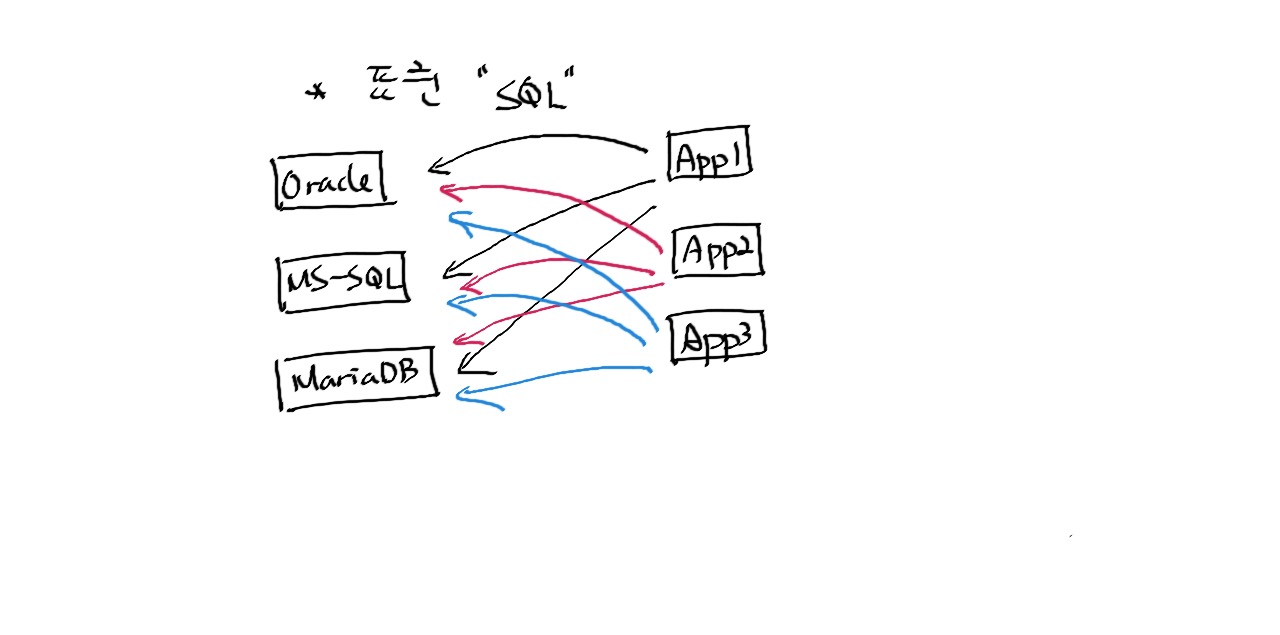 * 표준 "SQL"
Oracle
MS-SQL
MariaDB
App1
App2
App3